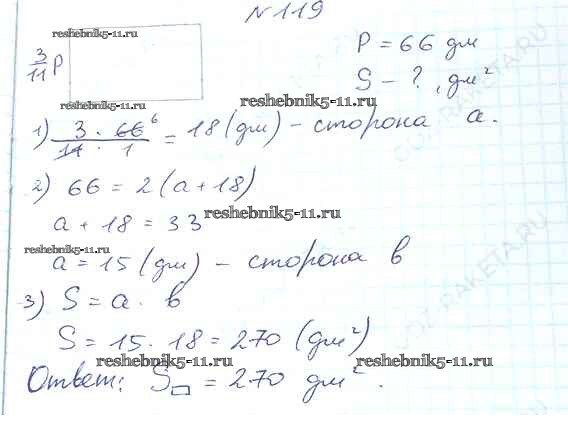 №119
reshebnik5-11.ru
3/11 P
P = 66 дм
S - ? , дм²
reshebnik5-11.ru
reshebnik5-11.ru
1) 3 · 66 6 / 11 · 1 = 18 (дм) – сторона a.
2) 66 = 2(a + 18)
a + 18 = 33
reshebnik5-11.ru
reshebnik5-11.ru
a = 15 (дм) – сторона в
3) S = a · в
S = 15 · 18 = 270 (дм²)
reshebnik5-11.ru
reshebnik5-11.ru
Ответ: S▭ = 270 дм².